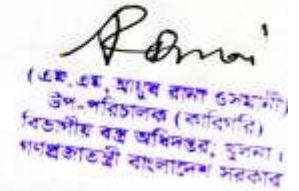 (এম, এম, মামুন রানা ওসমানী)
উপ-পরিচালক (কারিগরি)
বিভাগীয় বস্ত্র অধিদপ্তর, খুলনা।
গণপ্রজাতন্ত্রী বাংলাদেশ সরকার